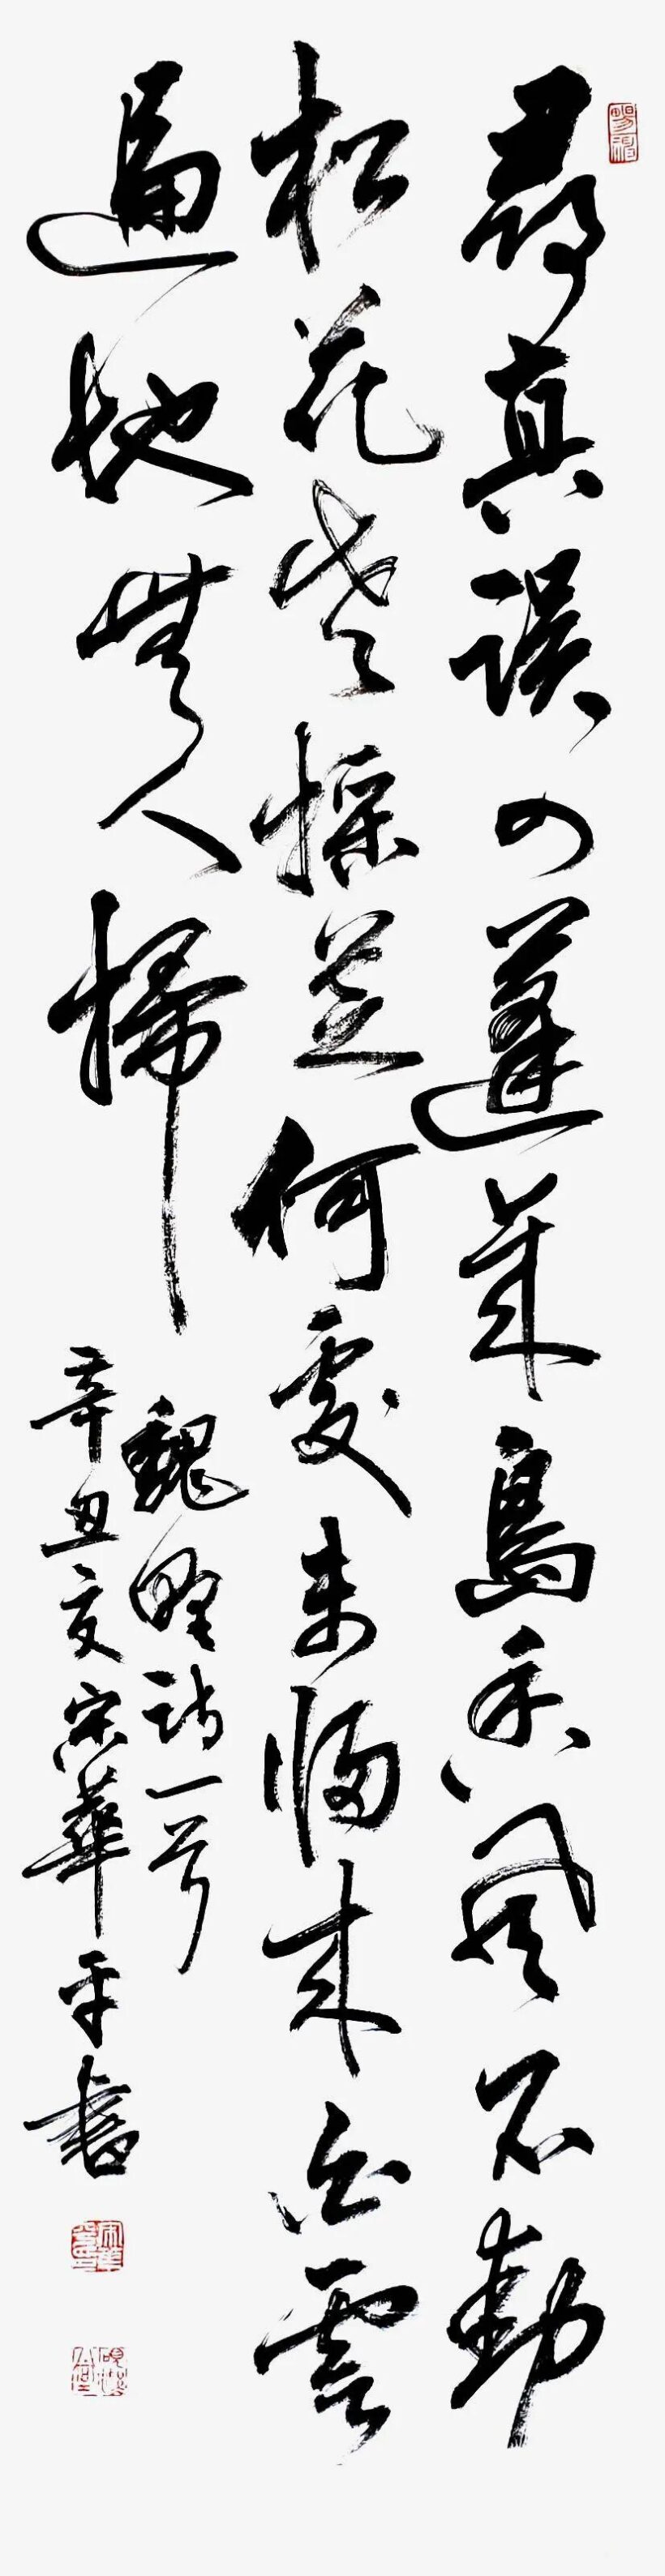 尋真誤入蓬萊島香風不動
松花老採芝何處未歸來白雲
遍地無人掃
魏野詩一首
辛丑夏宋華平書